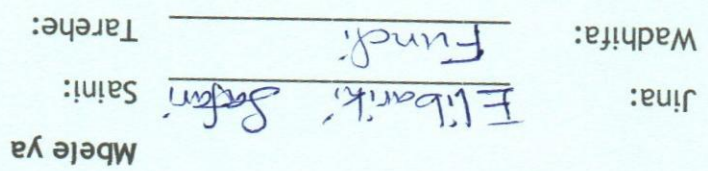 Mbele ya
Jina: Elibariki Safari Saini:
Wadhifa: Fundi Tarehe: